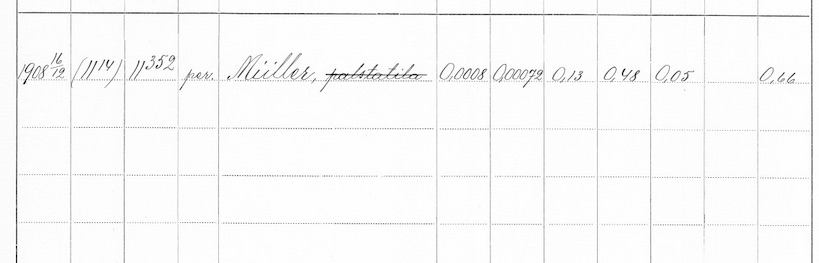 1908 16/12 (11¹⁴) 11³⁵² per. Müller, palstatila 0,0008 0,00072 0,13 0,48 0,05 0,66